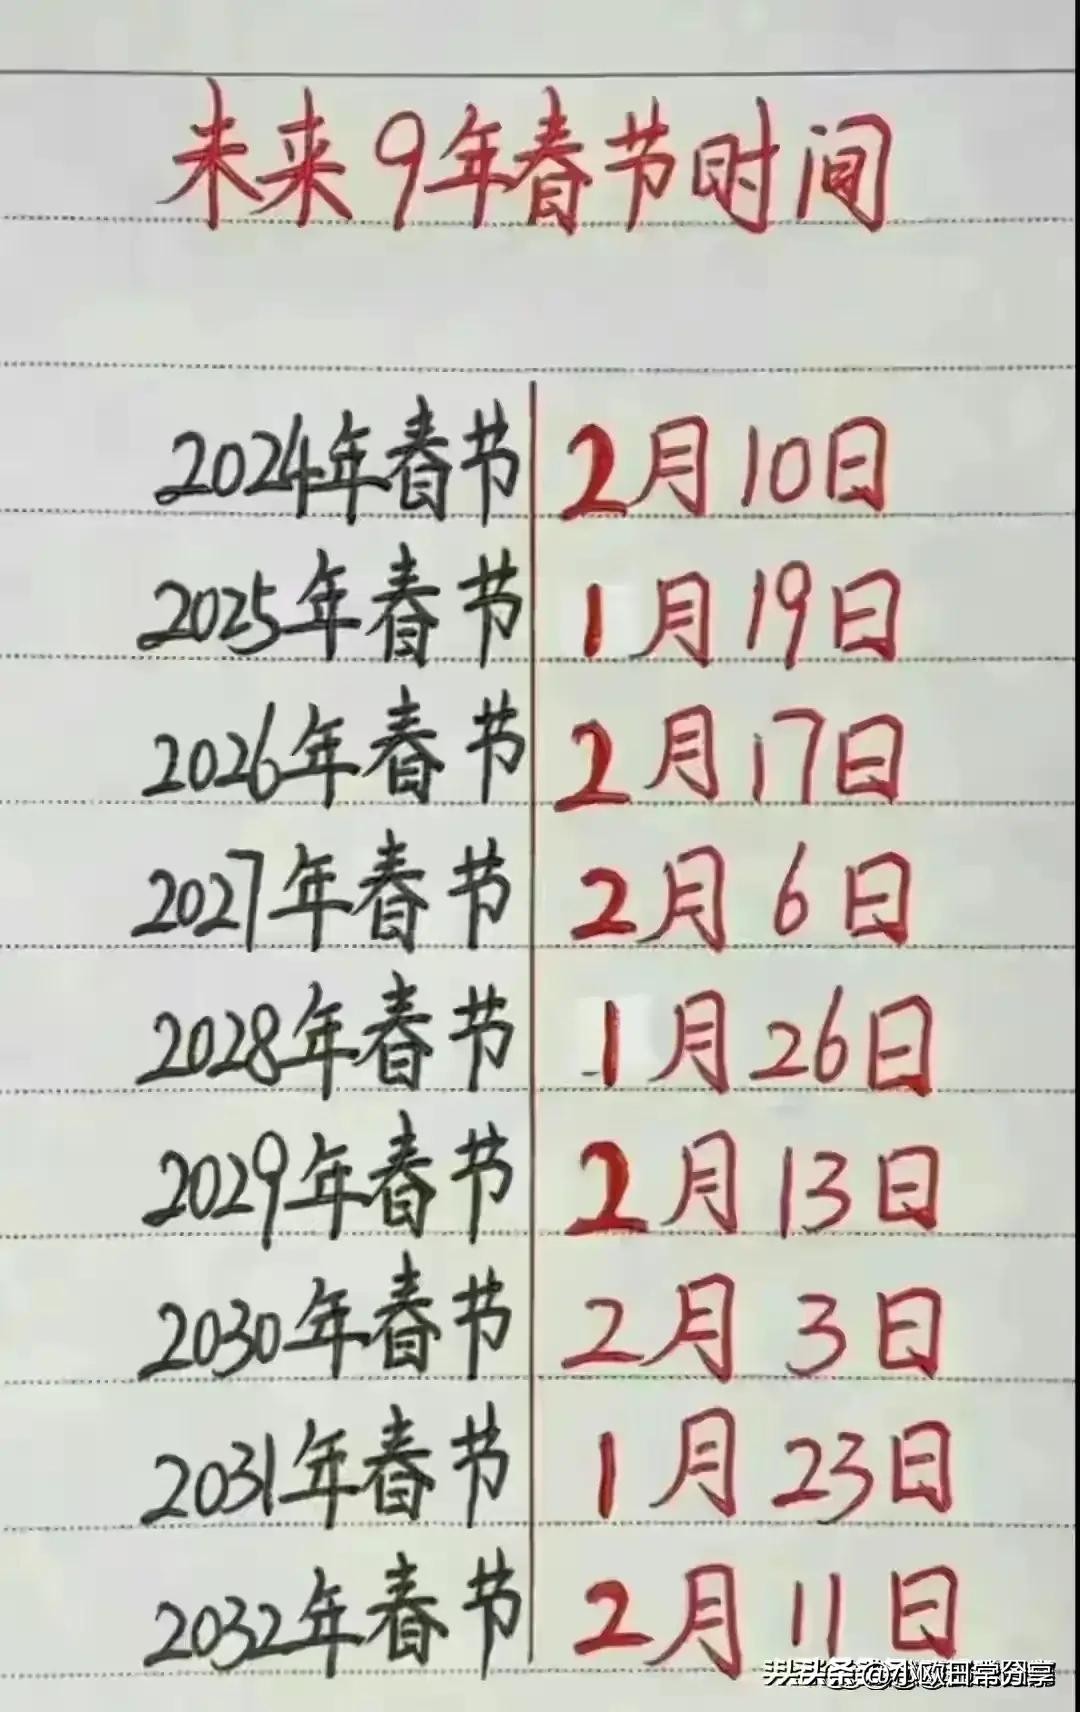 未来9年春节时间
2024年春节 2月10日
2025年春节 1月19日
2026年春节 2月17日
2027年春节 2月6日
2028年春节 1月26日
2029年春节 2月13日
2030年春节 2月3日
2031年春节 1月23日
2032年春节 2月11日
头条 @小欧日常分享